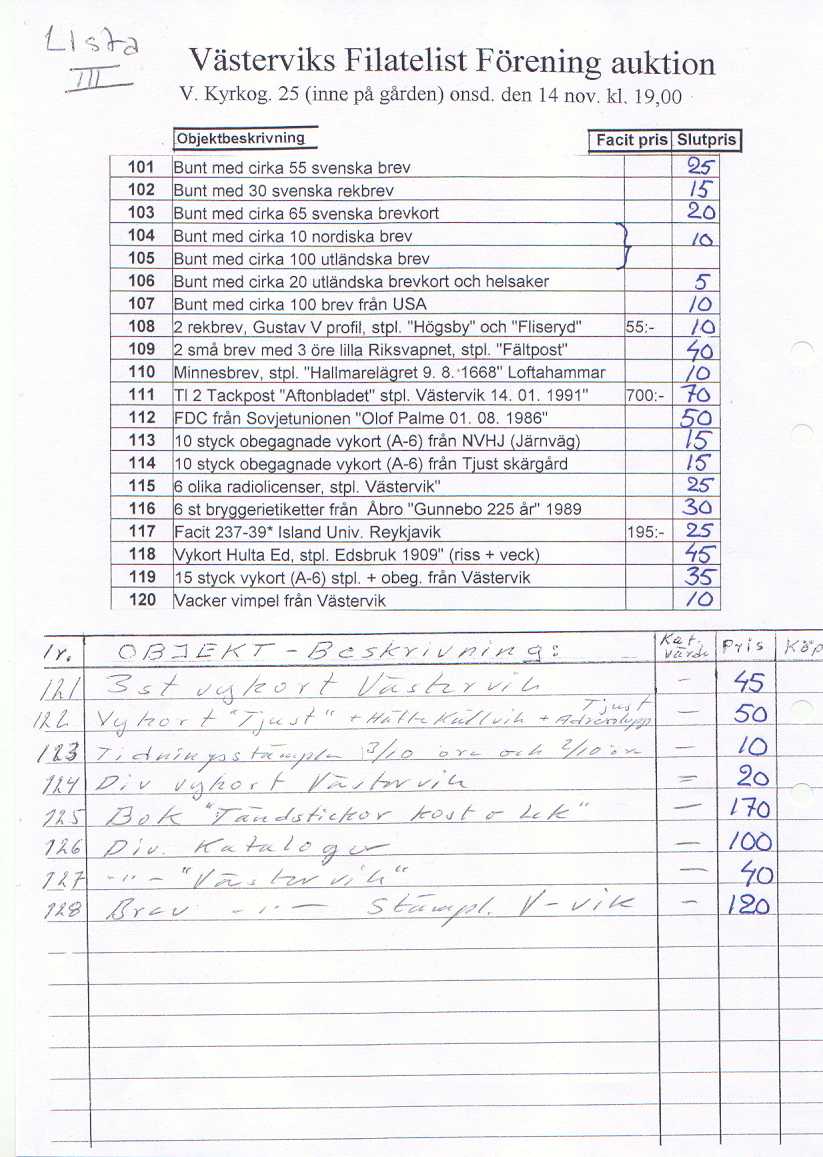 Lista
III
Västerviks Filatelist Förening auktion
V. Kyrkog. 25 (inne på gården) onsd. den 14 nov. kl. 19,00
Objektbeskrivning Facit pris Slutpris
101 Bunt med cirka 55 svenska brev 25
102 Bunt med 30 svenska rekbrev 15
103 Bunt med cirka 65 svenska brevkort 20
104 Bunt med cirka 10 nordiska brev } 10
105 Bunt med cirka 100 utländska brev
106 Bunt med cirka 20 utländska brevkort och helsaker 5
107 Bunt med cirka 100 brev från USA 10
108 2 rekbrev, Gustav V profil, stpl. "Högsby" och "Fliseryd" 55:- 10
109 2 små brev med 3 öre lilla Riksvapnet, stpl. "Fältpost" 40
110 Minnesbrev, stpl. "Hallmarelägret 9. 8. 1668" Loftahammar 10
111 Tl 2 Tackpost "Aftonbladet" stpl. Västervik 14. 01. 1991" 700:- 70
112 FDC från Sovjetunionen "Olof Palme 01. 08. 1986" 50
113 10 styck obegagnade vykort (A-6) från NVHJ (Järnväg) 15
114 10 styck obegagnade vykort (A-6) från Tjust skärgård 15
115 6 olika radiolicenser, stpl. Västervik" 25
116 6 st bryggerietiketter från Åbro "Gunnebo 225 år" 1989 30
117 Facit 237-39* Island Univ. Reykjavik 195:- 25
118 Vykort Hulta Ed, stpl. Edsbruk 1909" (riss + veck) 45
119 15 styck vykort (A-6) stpl. + obeg. från Västervik 35
120 Vacker vimpel från Västervik 10
Nr. OBJEKT - Beskrivning: Kat. värde Pris Köp
121 3st vykort Västervik - 45
122 Vykort "Tjust" + + Tjust - 50
123 Tidningsstämpla 3/10 öre och 2/10 öre - 10
124 Div vykort Västervik = 20
125 Bok "Tändstickor konst o lek" - 170
126 Div. Kataloger - 100
127 -"- "Västervik" - 40
128 Brev -"- Stämpl. V-vik - 120